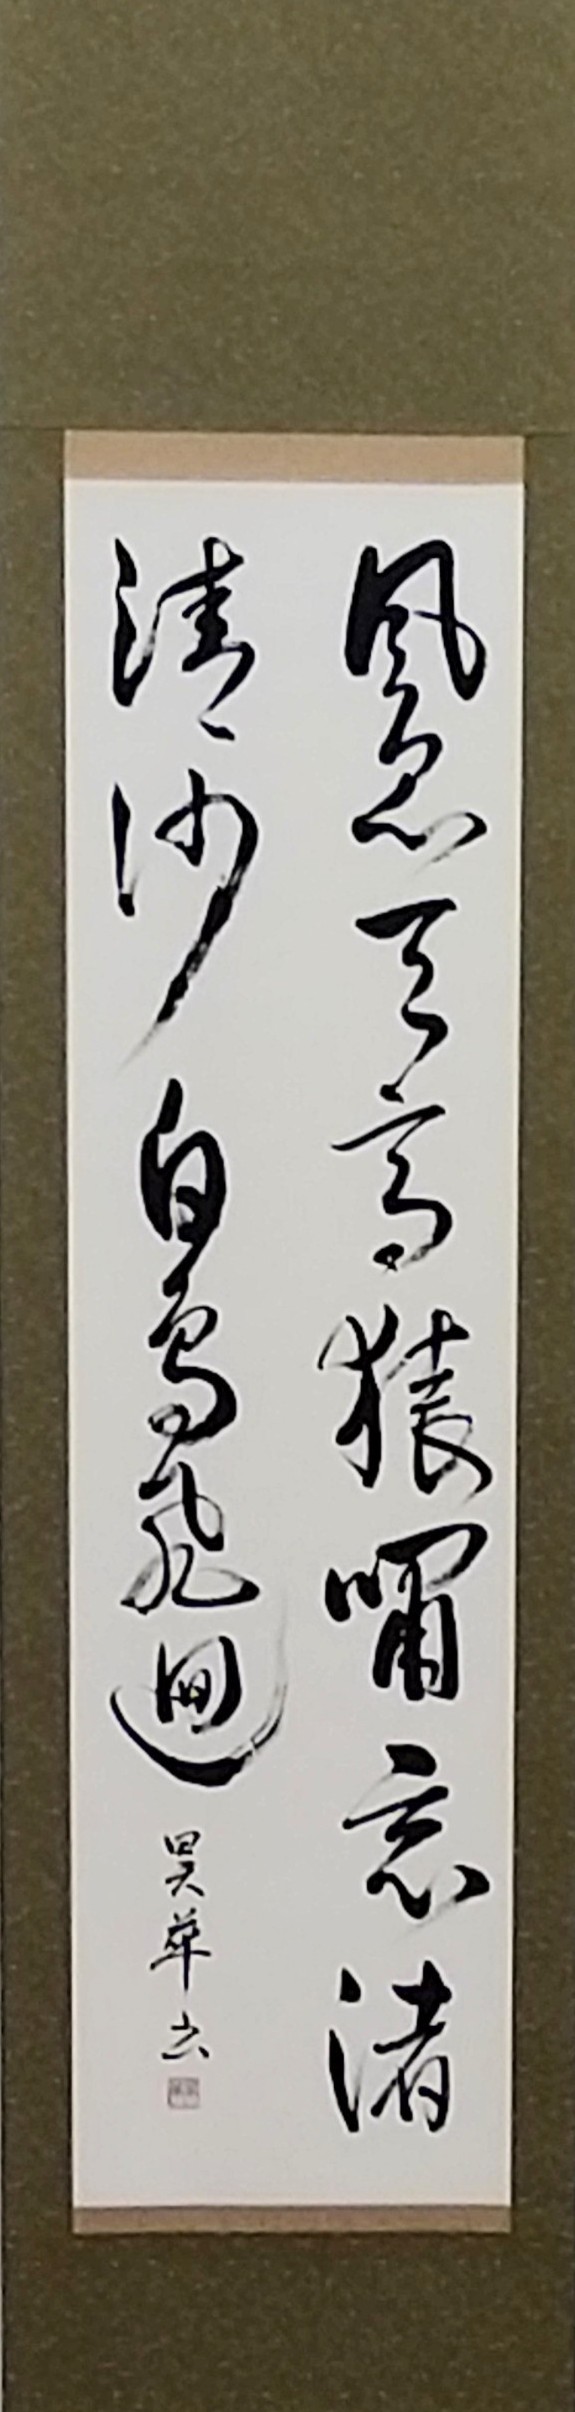 風急天高猿嘯哀渚
清沙白鳥飛廻
昊華書